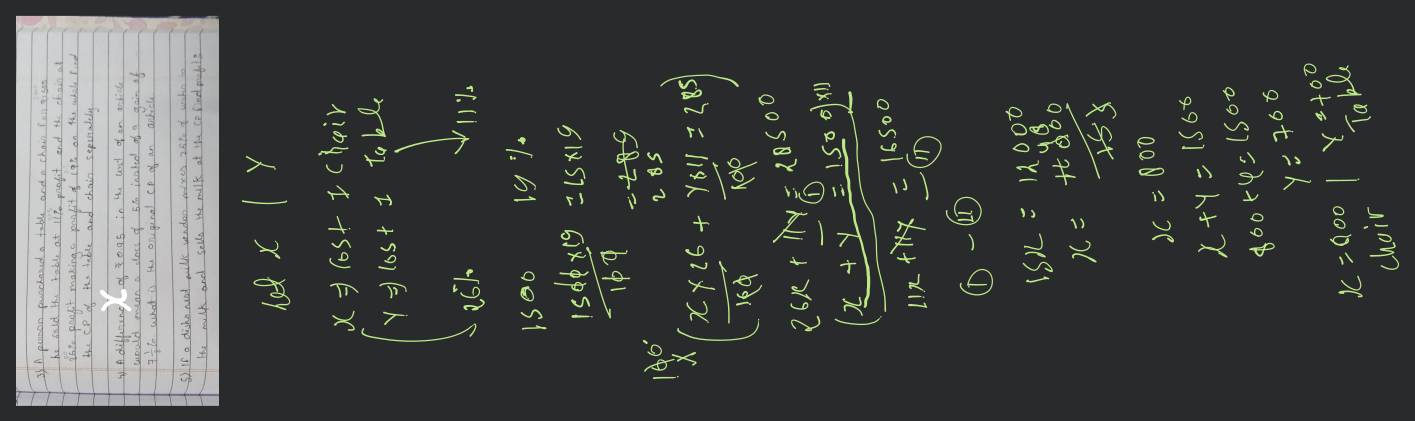 3) A person purchased a table and a chair for ₹1500
he sold the table at 11% profit and the chair at
26% profit making a profit of 19% on the whole find
the CP of the table and chair separately
4) A difference of ₹ in the cost of an article
would mean a loss of 5% instead of a gain of
7½% what is the original CP of an article
5) If a dishonest milk vendor mixes 25% of water in
the milk and sells the milk at the CP find profit%
let x | y
x ⇒ cost 1 chair
y ⇒ cost 1 table
26% 11%
1500 19%
1500x19 = 15x19
100
= 289
285
100 x ( x x 26 + y x 11 = 285 )
100 100
26x + 11y = 28500
— (I)
( x + y = 1500 ) x11
11x + 11y = 16500
— (II)
(I) — (II)
15x = 12000
x =
x = 800
x + y = 1500
800 + y = 1500
y = 700
x = 800 | y = 700
chair table